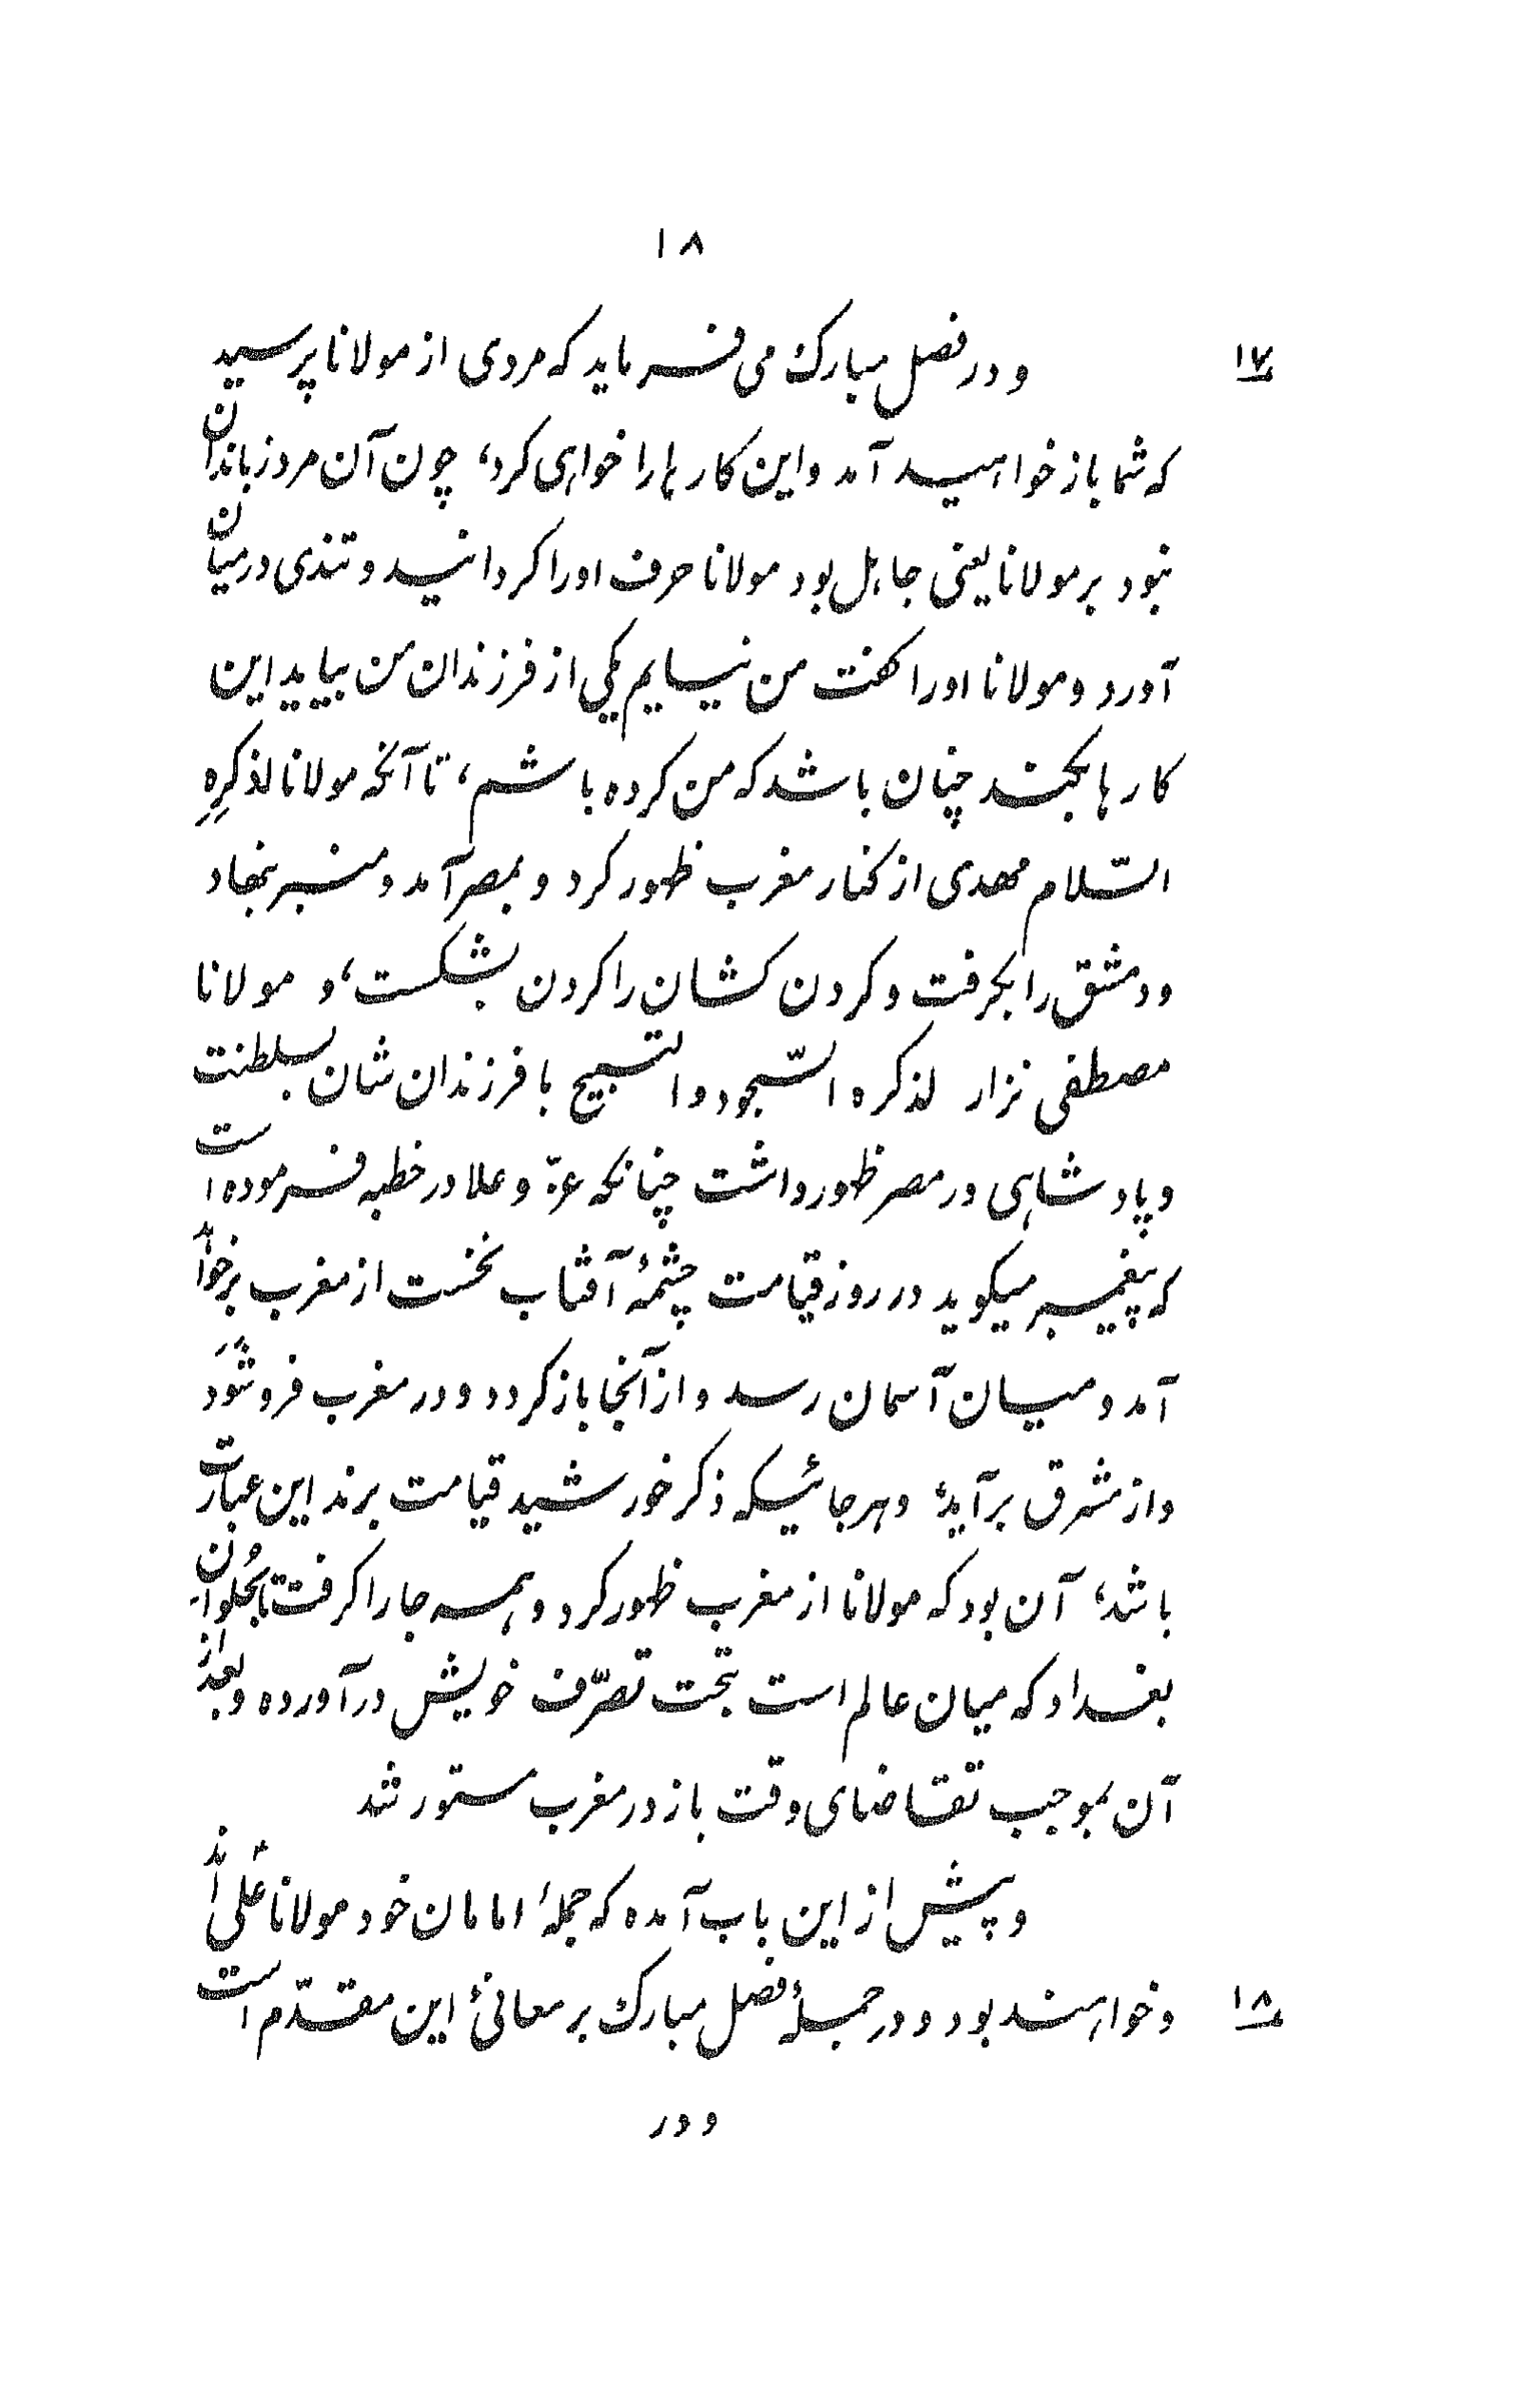 ۱۸
۱۷ و در فصل مبارک می فرماید که مردی از مولانا پرسید
که شما باز خواهید آمد و این کارها را خواهی کرد، چون آن مرد زباندان
نبود بر مولانا یعنی جاهل بود مولانا حرف اورا کردانید و تندی درمیان
آورد و مولانا اورا کفت من نیایم یکی از فرزندان من بیاید این
کارها بکند چنان باشد که من کرده باشم، تا آنکه مولانا لذکرِهِ
السّلام مهدی از کنار مغرب ظهور کرد و بمصر آمد و منبر بنهاد
و دمشق را بکرفت و کردن کشان را کردن بشکست، و مولانا
مصطفی نزار لذکره السّجود و التسبیح با فرزندان شان بسلطنت
و پادشاهی در مصر ظهور داشت چنانکه عزّ و علا در خطبه فرموده است
که پیغمبر میکوید در روز قیامت چشمهٔ آفتاب نخست از مغرب برخواهد
آمد و میان آسمان رسد و از آنجا باز کردد و در مغرب فرو شَوَد
و از مشرق برآید، و هر جائیکه ذکر خورشید قیامت برند این عبارت
باشد، آن بود که مولانا از مغرب ظهور کرد و همه جا را کرفت تا بحُلوان
بغداد که میان عالم است تحت تصرّف خویش در آورده و بعد از
آن بموجب تقاضای وقت باز در مغرب مستور شد
و پیش از این باب آمده که جملهٔ امامان خود مولانا علی اند
۱۸ و خواهند بود و در جملهٔ فصل مبارک بر معانیٔ این مقدّم است
و در